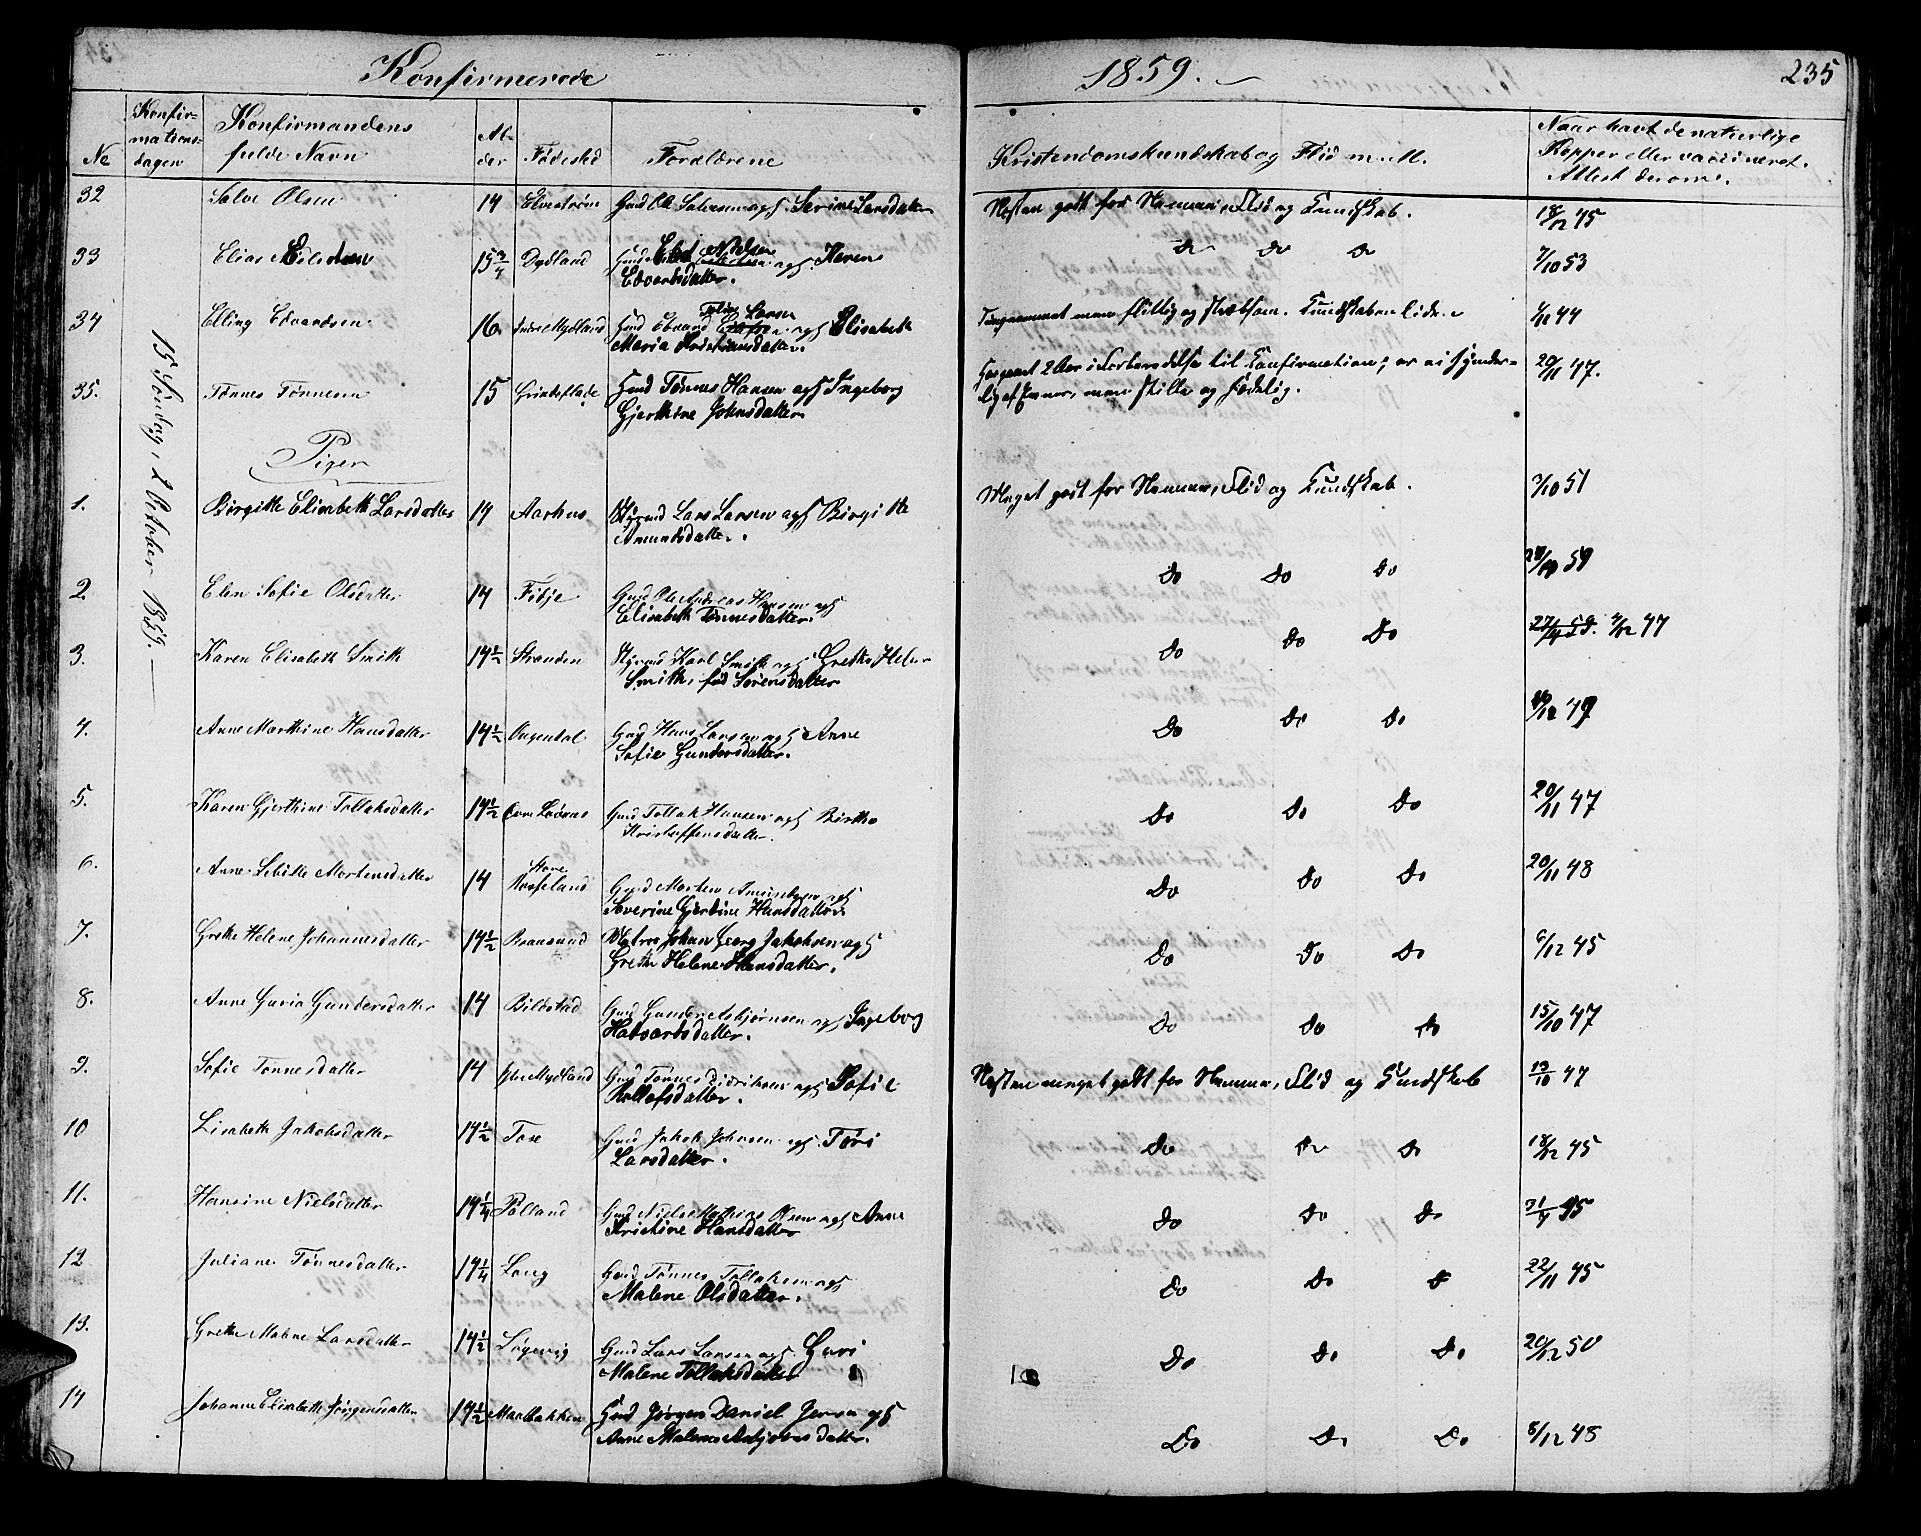 Konfirmerede 1859. 235
No
Konfir-
mations-
dagen
Konfirmandens
fulde Navn
Al-
der
Fødested
Forældrene
Kristendomskundskab og Flid m. M.
Naar havt de naturlige
Kopper eller vaccineret.
Attest derom.
15 Søndag, 2 October 1859.
32 Salve Olsen 14 Gmd Ole Salvesen og h. Serine Larsdatter Næsten godt for Nemme, Flid og Kundskab. 18/12 45
33 Elias 15 3/4 Dydland Gmd Elert Nielsen og h. Karen Do Do Do 7/10 53
Edvartsdatter.
34 Elling Edvardsen 16 Indre Mydland Gmd Edvard og h. Elisabeth Tungnemmet men flittig og stræbsom. Kundskaben liden 1/11 44
Maria Kristiansdatter.
35. Tønnes Tønnesen 15 Grindeflade Gmd Tønnes Hansen og h. Ingeborg 2 Aar i Forberedelse til Konfirmation; er ei synder- 20/11 47.
Gjerthine Johnsdatter lig af Evner, men stille og sædelig.
Piger
1. Birgitte Elisabeth Larsdatter 14 Aarhus Styrmd Lars Larsen og h. Birgitte Meget godt for Nemme, Flid og Kundskab. 7/10 51
Amundsdatter.
2. Elen Sofie Olsdatter 14 Fibje Gmd Ole Andreas Hansen og h. Do Do Do
Elisabeth Tønnesdatter.
3. Karen Elisabeth Smith 14 1/2 Stranden Styrmd Karl Smith og h. Grethe Helene Do Do Do
Smith, fød Sørensdatter
4. Anne Marthine Hansdatter 14 1/2 Aagendal Gmd Hans Larsen og h. Anne Do Do Do
Sofie Gundersdatter.
5. Karen Gjerthine Tollaksdatter 14 1/2 Gmd Tollak Hansen og h. Birthe Do Do Do 20/11 47
Kristoffersdatter.
6. Anne Sibille Mortensdatter 14 Store Rosseland Gmd Morten Amundsen og h. Do Do Do 20/11 48
Severine Gjertine Hansdatter.
7. Grethe Helene Johannesdatter 14 1/2 Bransund Matros Johan Georg Jakobsen og h. Do Do Do 6/12 45
Grethe Helene Hansdatter.
8. Anne Guria Gundersdatter 14 Bildstad Gmd Gunder Asbjørnsen og h. Ingeborg Do Do Do 15/10 47
Havartsdatter.
9. Sofie Tønnesdatter 14 Ytre Mydland Gmd Tønnes Didriksen og h. Sofie Næsten meget godt for Nemme, Flid og Kundskab 13/10 47
Rollefsdatter.
10 Lisabeth Jakobsdatter 14 1/2 Tose Gmd Jakob Johnsen og h. Tøri Do Do Do 18/12 45
Larsdatter.
11. Hansine Nielsdatter 14 1/4 Pølland Gmd Niels Mathias Olsen og h. Anne Do Do Do
Kristine Hansdatter
12 Juliane Tønnesdatter 14 1/4 Long Gmd Tønnes Tollaksen og h. Do Do Do 22/11 45
Malene Olsdatter.
13. Grethe Malene Larsdatter 14 1/2 Løgevig Gmd Lars Larsen og h. Guri Do Do Do 20/12 50
Malene Tollaksdatter
14 Johanne Elisabeth Jørgensdatter 14 1/2 Marbakken Gmd Jørgen Daniel Jensen og h. Do Do Do 8/12 48
Anne Malene Asbjørnsdatter.